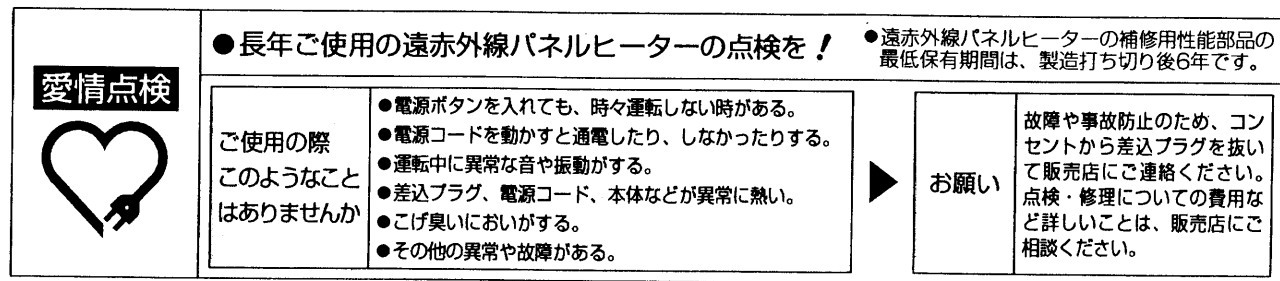 愛情点検
●長年ご使用の遠赤外線パネルヒーターの点検を！
●遠赤外線パネルヒーターの補修用性能部品の
最低保有期間は、製造打ち切り後6年です。
ご使用の際
このようなこと
はありませんか
●電源ボタンを入れても、時々運転しない時がある。
●電源コードを動かすと通電したり、しなかったりする。
●運転中に異常な音や振動がする。
●差込プラグ、電源コード、本体などが異常に熱い。
●こげ臭いにおいがする。
●その他の異常や故障がある。
お願い
故障や事故防止のため、コン
セントから差込プラグを抜い
て販売店にご連絡ください。
点検・修理についての費用な
ど詳しいことは、販売店にご
相談ください。